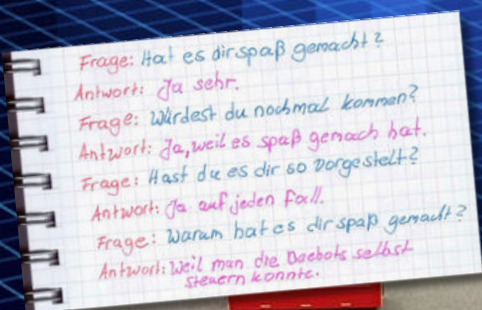 Frage: Hat es dir spaß gemacht?
Antwort: Ja sehr.
Frage: Würdest du nochmal kommen?
Antwort: Ja, weil es spaß gemach hat.
Frage: Hast du es dir so vorgestelt?
Antwort: Ja auf jeden Fall.
Frage: Warum hat es dir spaß gemacht?
Antwort: Weil man die Baebots selbst
steuern konnte.